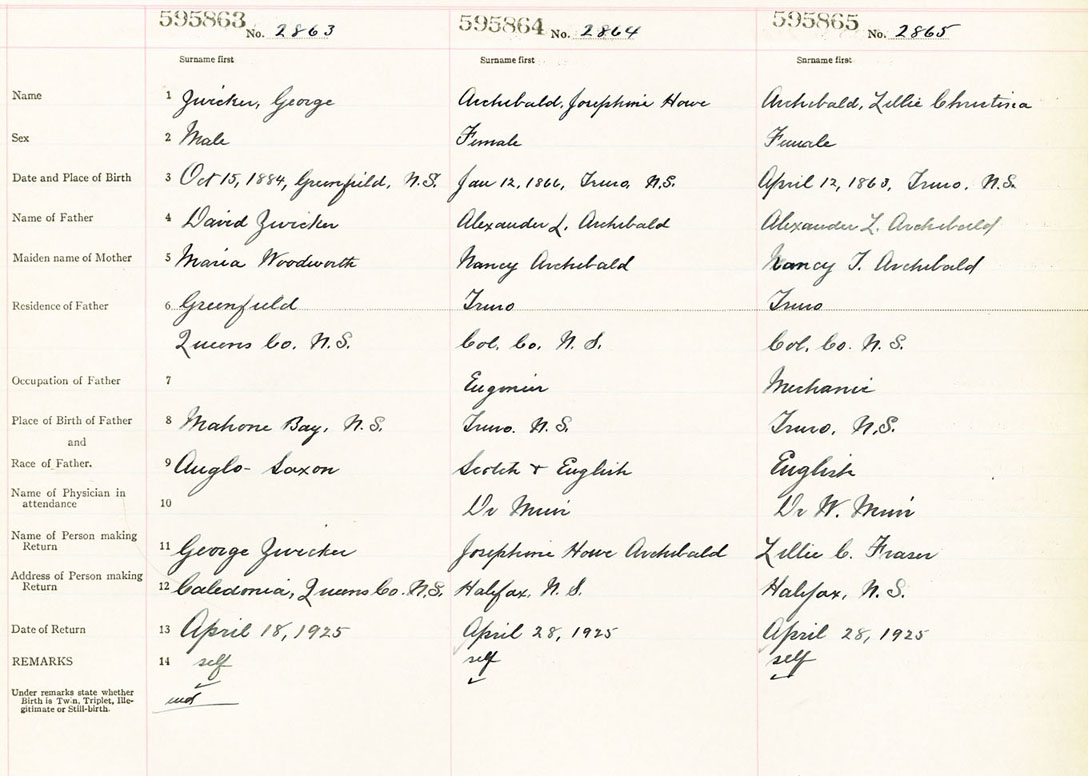 595863 No. 2863 595864 No. 2864 595865 No. 2865
Surname first Surname first Surname first
Name 1 Zwicker, George Archibald, Josephine Howe Archibald, Lillie Christina
Sex 2 Male Female Female
Date and Place of Birth 3 Oct 15, 1884, Greenfield, N.S. Jan 12, 1866, Truro, N.S. April 12, 1863, Truro, N.S.
Name of Father 4 David Zwicker Alexander L. Archibald Alexander L. Archibald
Maiden name of Mother 5 Maria Woodworth Nancy Archibald Nancy T. Archibald
Residence of Father 6 Greenfield Truro Truro
Queens Co. N.S. Col. Co. N.S. Col. Co. N.S.
Occupation of Father 7 Engineer Mechanic
Place of Birth of Father 8 Mahone Bay, N.S. Truro. N.S. Truro, N.S.
and
Race of Father. 9 Anglo-Saxon Scotch & English English
Name of Physician in
attendance 10 Dr Muir Dr W. Muir
Name of Person making
Return 11 George Zwicker Josephine Howe Archibald Lillie C. Fraser
Address of Person making
Return 12 Caledonia, Queens Co. N.S. Halifax, N.S. Halifax, N.S.
Date of Return 13 April 18, 1925 April 28, 1925 April 28, 1925
REMARKS 14 self self self
Under remarks state whether
Birth is Twin, Triplet, Ille-
gitimate or Still-birth.